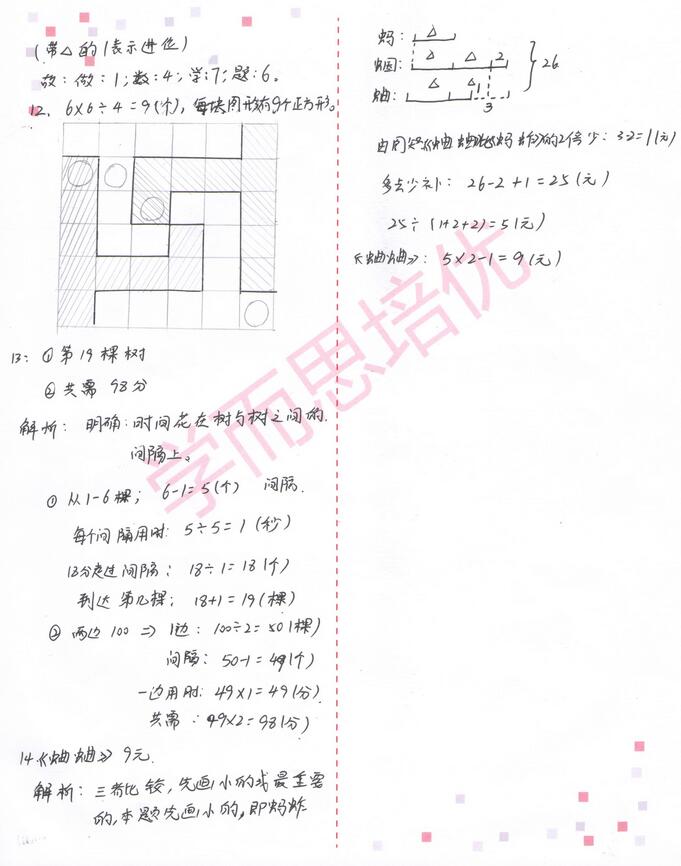 (带△的1表示进位)
故:做:1;数:4;学:7;题:6。
12. 6×6÷4=9(个),每块图形有9个正方形。
13: ① 第19棵树
② 共需 98分
解析: 明确:时间花在树与树之间的
间隔上。
① 从1-6棵; 6-1=5(个) 间隔.
每个间隔用时: 5÷5=1(秒)
18分走过间隔: 18÷1=18(个)
到达第几棵; 18+1=19(棵)
② 两边100 ⇒ 1边: 100÷2=50(棵)
间隔: 50-1=49(个)
一边用时: 49×1=49(分)
共需: 49×2=98(分)
14.《蛐蛐》9元.
解析: 三者比较,先画小的或最重要
的,本题先画小的,即蚂蚱
蚂: △
蝈: △ △ 2
蛐: △ △ 1
3
26
的2倍少: 3-2=1(元)
多去少补: 26-2+1=25(元)
25÷(1+2+2)=5(元)
《蛐蛐》: 5×2-1=9(元)
学而思培优